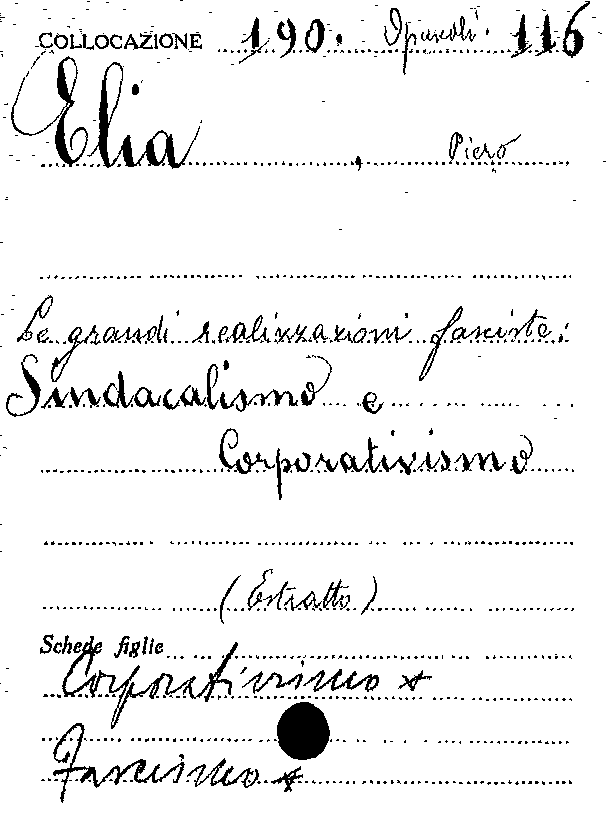 COLLOCAZIONE 190. Opuscoli. 116
Elia, Piero
Le grandi realizzazioni fasciste:
Sindacalismo e
Corporativismo
(Estratto)
Schede figlie
Corporativismo *
Fascismo *